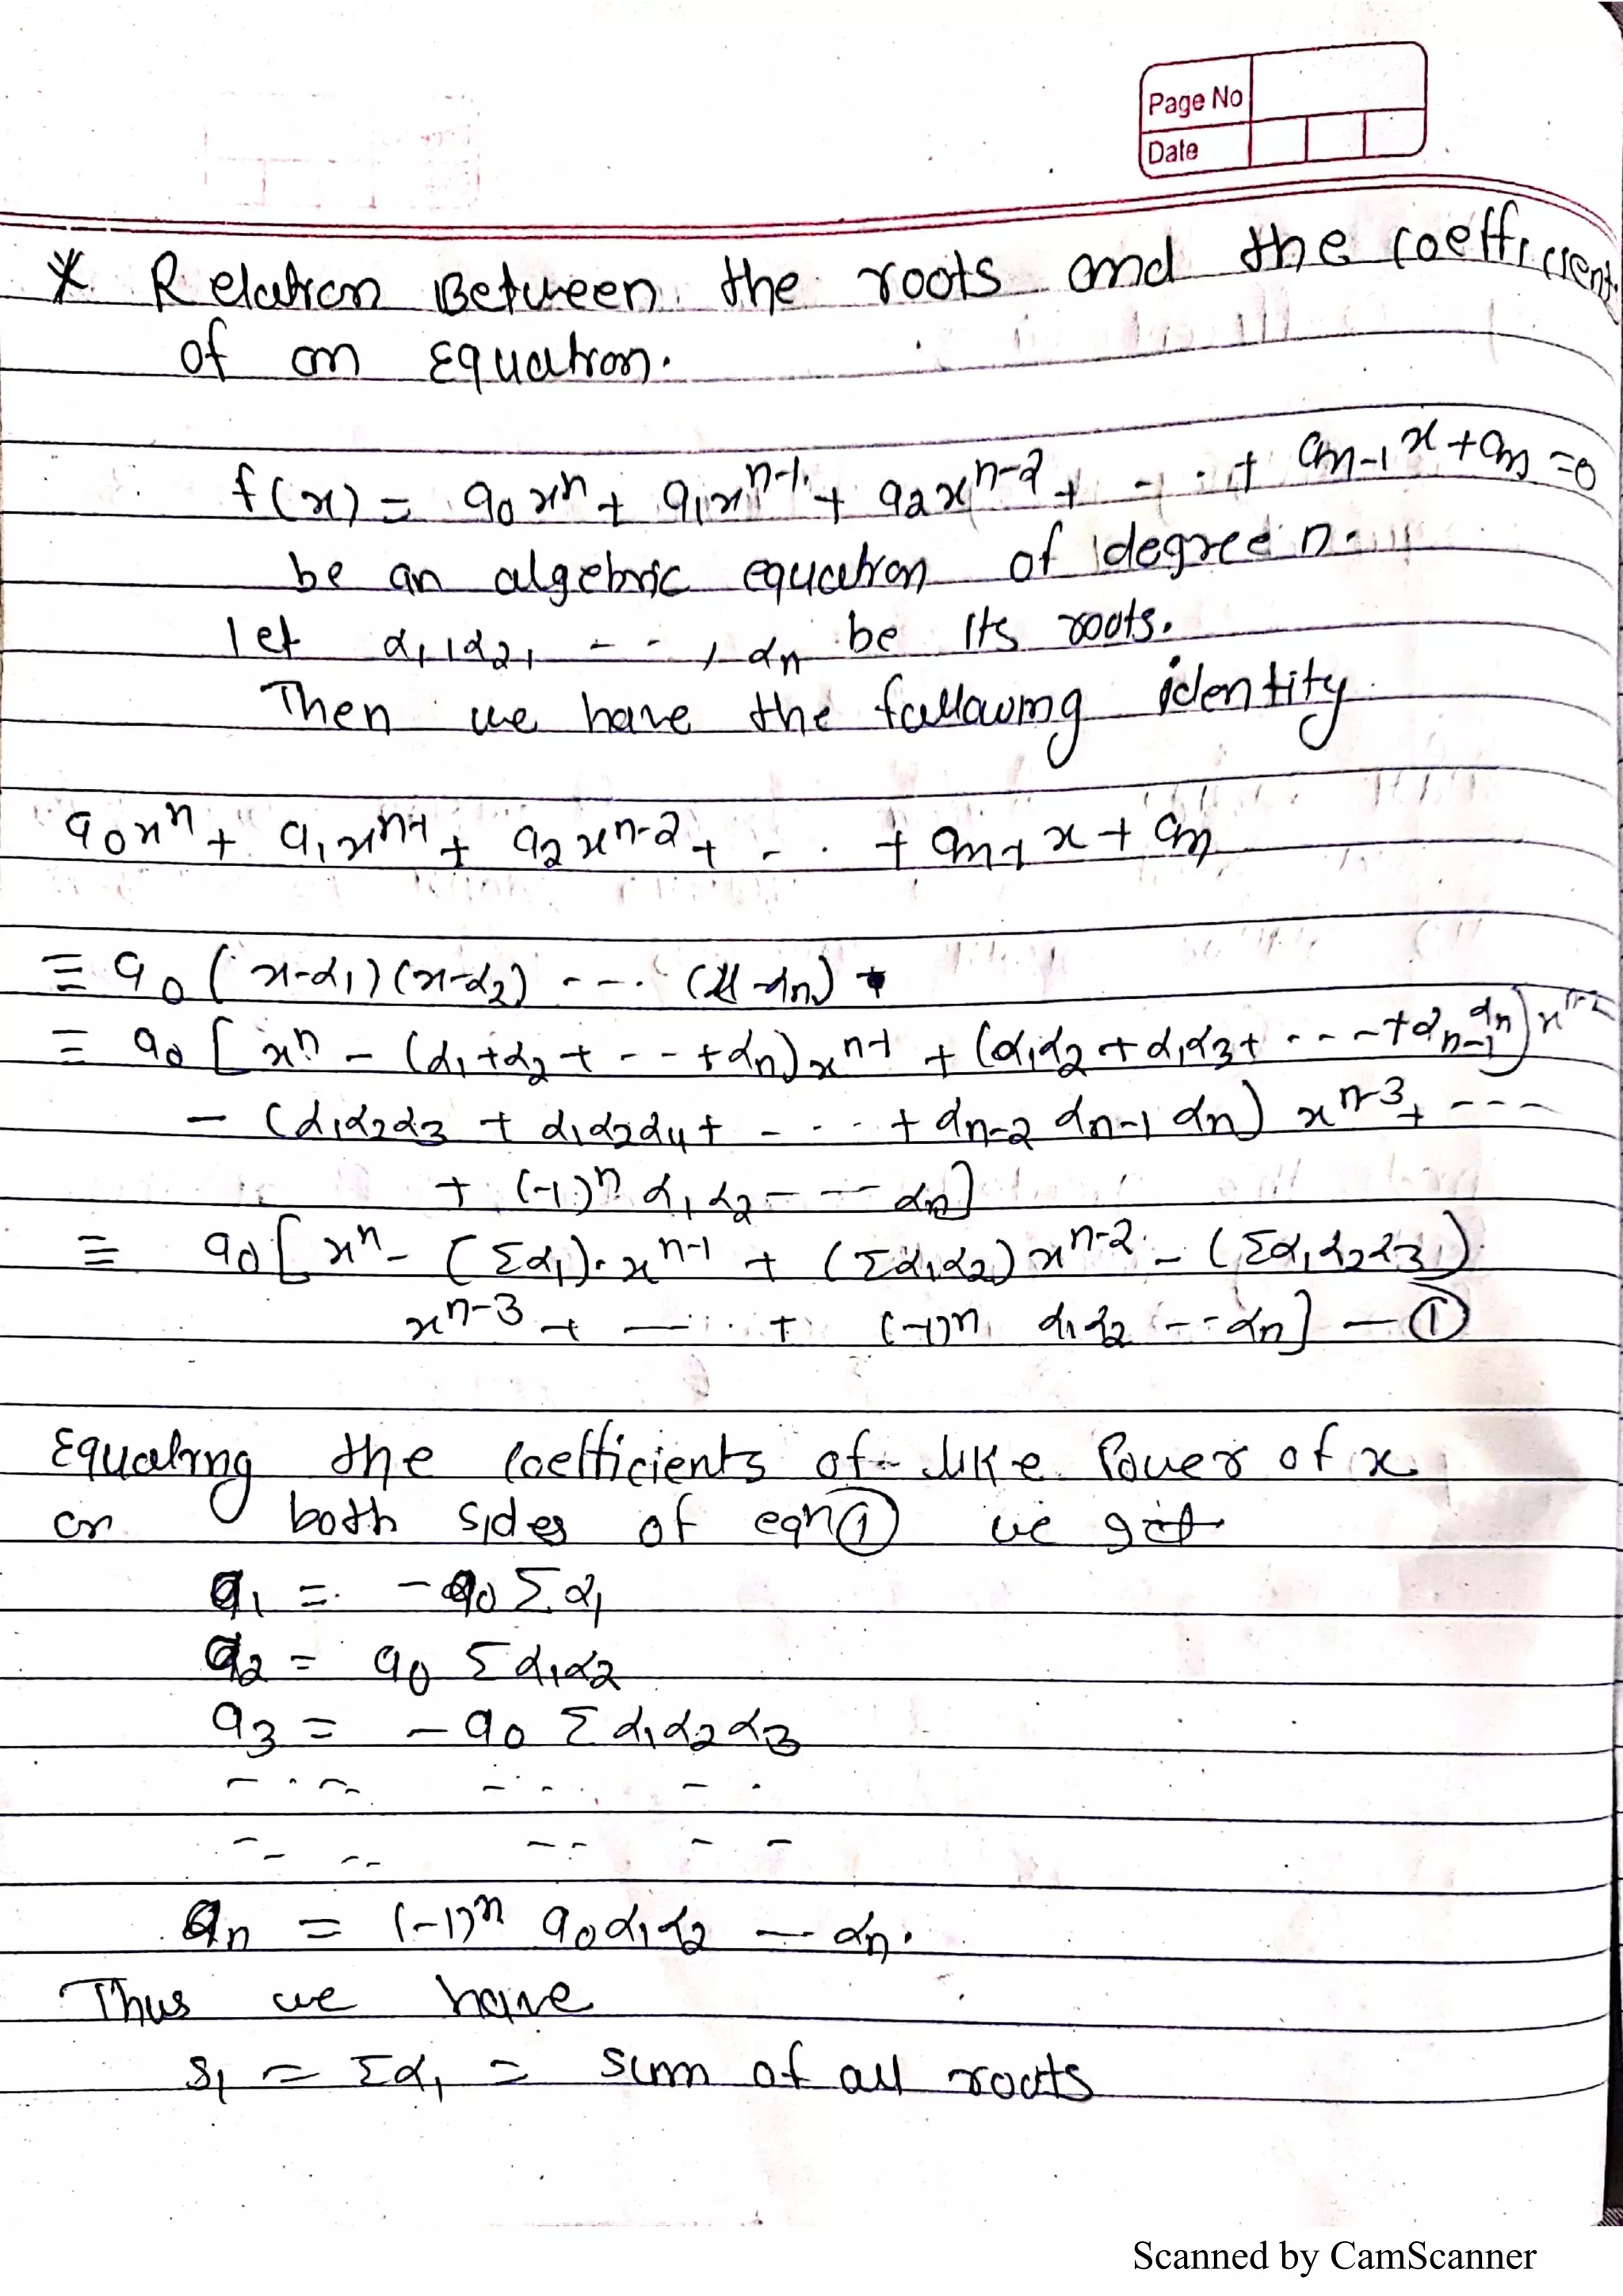 Page No
Date
* Relation Between the roots and the coefficient
of an Equation.
f(x) = a₀xⁿ + a₁xⁿ⁻¹ + a₂xⁿ⁻² + - - · + aₙ₋₁x + aₙ = 0
be an algebric equation of degree n.
let α₁, α₂, - - , αₙ be its roots.
Then we have the following identity
a₀xⁿ + a₁xⁿ⁻¹ + a₂xⁿ⁻² + - · · + aₙ₋₁x + aₙ
≡ a₀ (x-α₁)(x-α₂) - - - · (x-αₙ)
≡ a₀ [xⁿ - (α₁+α₂+ - - +αₙ)xⁿ⁻¹ + (α₁α₂+α₁α₃+ - - - +αₙ₋₁αₙ)xⁿ⁻²
- (α₁α₂α₃ + α₁α₂α₄ + - - - - + αₙ₋₂ αₙ₋₁ αₙ) xⁿ⁻³ + - - -
+ (-1)ⁿ α₁ α₂ - - - αₙ]
≡ a₀ [xⁿ - (Σα₁)·xⁿ⁻¹ + (Σα₁α₂) xⁿ⁻² - (Σα₁α₂α₃)
xⁿ⁻³ + - · · + (-1)ⁿ α₁α₂ - - αₙ] - ①
Equating the coefficients of like Power of x
on both sides of eqn ① we get
a₁ = -a₀ Σα₁
a₂ = a₀ Σα₁α₂
a₃ = -a₀ Σα₁α₂α₃
- · - - - · - · - ·
- - - - - - - -
aₙ = (-1)ⁿ a₀α₁α₂ - - αₙ.
Thus we have
s₁ = Σα₁ = sum of all roots
Scanned by CamScanner